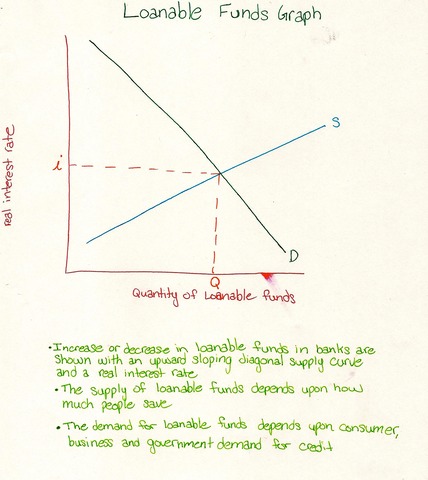 Loanable Funds Graph
real interest rate
S
i
D
Q
Quantity of Loanable funds
•Increase or decrease in loanable funds in banks are
shown with an upward sloping diagonal supply curve
and a real interest rate
•The supply of loanable funds depends upon how
much people save
•The demand for loanable funds depends upon consumer,
business and government demand for credit